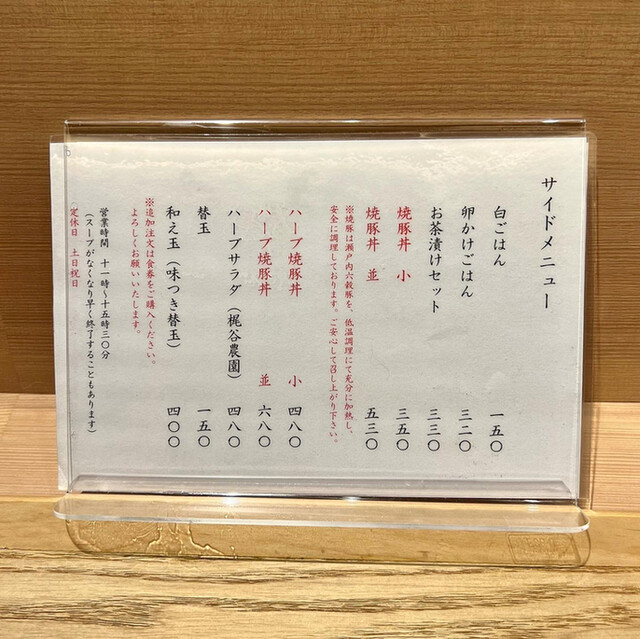 サイドメニュー
白ごはん 一五〇
卵かけごはん 三二〇
お茶漬けセット 三三〇
焼豚丼 小 三五〇
焼豚丼 並 五三〇
※焼豚は瀬戸内六穀豚を、低温調理にて充分に加熱し、
安全に調理しております。ご安心して召し上がり下さい。
ハーブ焼豚丼 小 四八〇
ハーブ焼豚丼 並 六八〇
ハーブサラダ（梶谷農園） 四八〇
替玉 一五〇
和え玉（味つき替玉） 四〇〇
※追加注文は食券をご購入ください。
よろしくお願いいたします。
営業時間 十一時～十五時三〇分
（スープがなくなり早く終了することもあります）
定休日 土日祝日